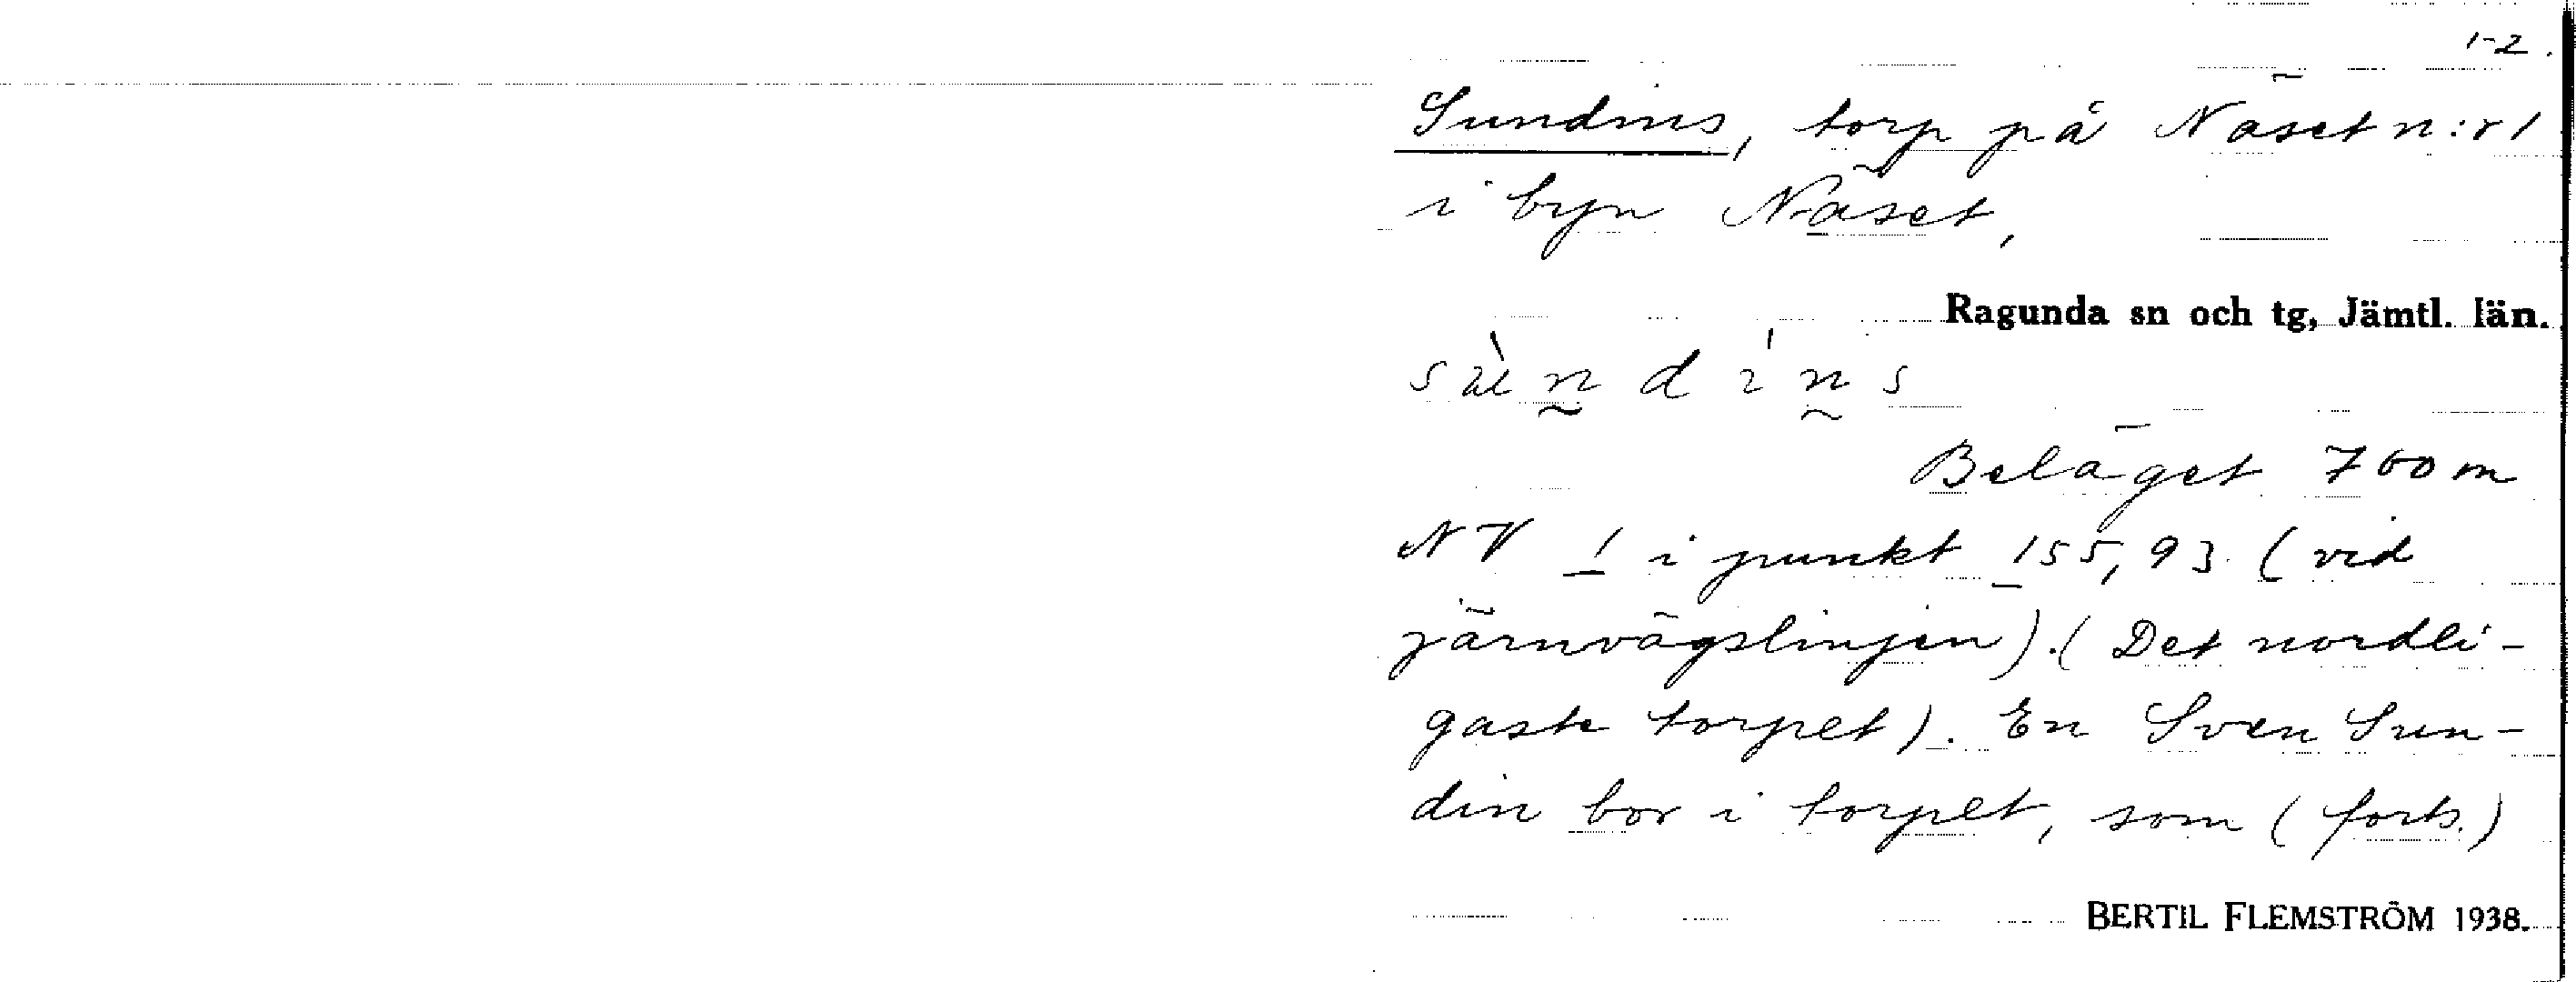 1-2.
Sundins, torp på Näset n:r 1
i byn Näset,
Ragunda sn och tg, Jämtl. län.
Beläget 700 m
NV 1 i punkt 155,93 (vid
järnvägslinjen). (Det nordli-
gaste torpet). En Sven Sun-
din bor i torpet, som (forts.)
BERTIL FLEMSTRÖM 1938.